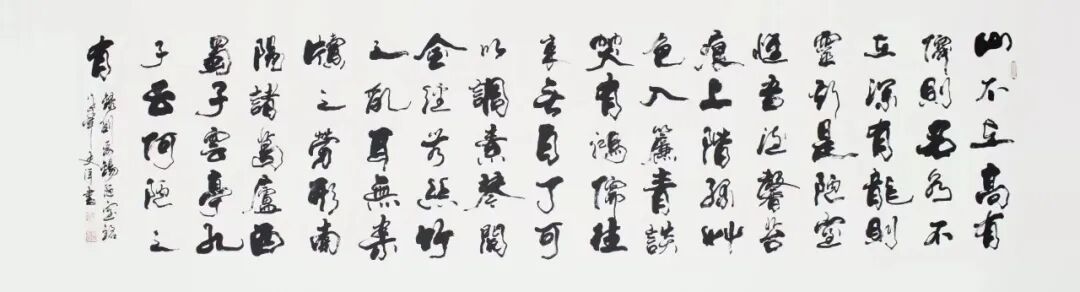 山不在高有
僊則名水不
在深有龍則
靈斯是陋室
惟吾德馨苔
痕上階綠艸
色入簾青談
笑有鴻儒往
來无白丁可
以調素琴閱
金經無絲竹
之亂耳無案
牘之勞形南
陽諸葛廬西
蜀子雲亭孔
子云何陋之
有
錄劉禹錫陋室銘
書